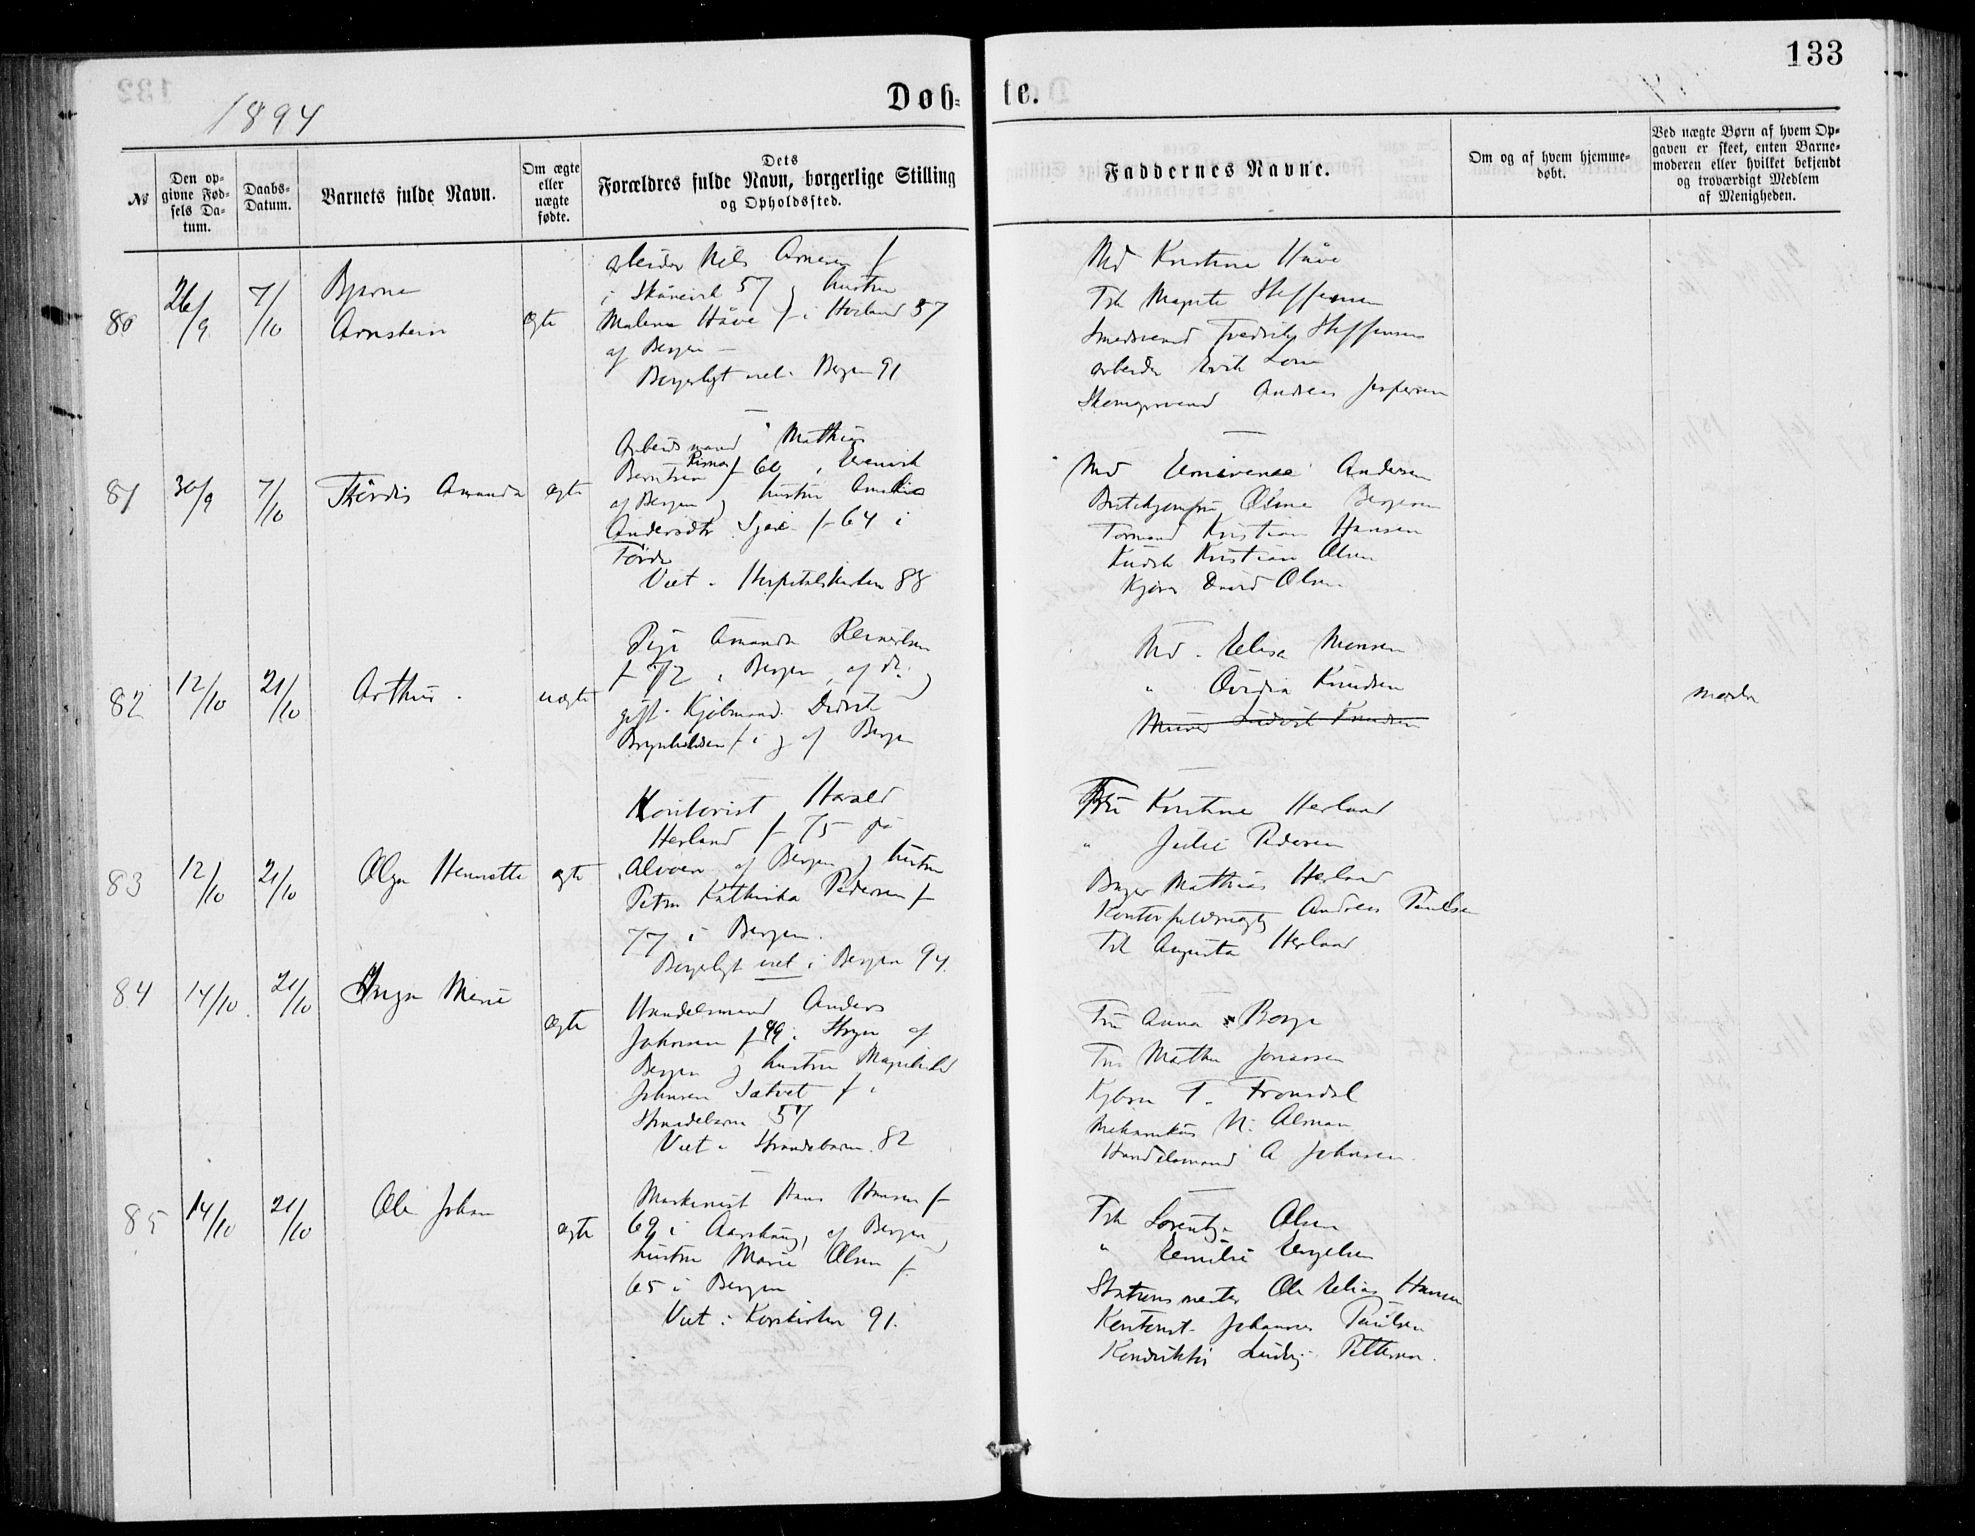 133
1894
Døb-
te.
№
Den op-
givne Fød-
sels Da-
tum.
Daabs-
Datum.
Barnets fulde Navn.
Om ægte
eller
uægte
fødte.
Dets
Forældres fulde Navn, borgerlige Stilling
og Opholdssted.
Faddernes Navne.
Om og af hvem hjemme-
døbt.
Ved uægte Børn af hvem Op-
gaven er skeet, enten Barne-
moderen eller hvilket bekjendt
og troværdigt Medlem
af Menigheden.
80
26/9
7/10
Bjarne
Arnstein
ægte
arbeider Nils Arnesen f
i Skånevik 57 og hustru
Malena Håve f i Hosland 57
af Bergen
Borgerligt viet i Bergen 91
Md Kristine Håve
Frk Magrete Steffensen
Smedsvend Fredrik Steffensen
arbeider Erik
Andreas Jespersen
81
30/9
7/10
Thördis Amanda
ægte
Arbeidsmand Mathias
Berntsen f 60 i Evenvik
af Bergen og hustru
Andersdtr f 64 i
Förde
Viet i Hospitalskirken 88
Md Andersen
Kristian Hansen
Kudsk Kristian Olsen
David Olsen
82
12/10
21/10
Arthur
uægte
Pige Amanda Reinertsen
f 72 i Bergen, af do. og
gift Kjøbmand Didrik
Brynhildsen f i og af Bergen
Md. Elisa Monsen
" Ovidia Knudsen
Murer Ludvik Knudsen
moder
83
12/10
21/10
Olga Henriette
ægte
Kontorist Harald
Herland f 75 på
Alvøen af Bergen og hustru
Petra Kathinka Pedersen f
77 i Bergen.
Borgerligt viet i Bergen 94.
Fru Kristine Herland
" Julie Pedersen
Bager Mathias Herland
Kontorfuldmægtig Andreas Paulsen
Frk Augusta Herland
84
14/10
21/10
Inga Marie
ægte
Handelsmand Anders
Johnsen f 49 i Stryn af
Bergen og hustru Magnhild
Johnsen Sætvet f i
Strandebarm 57
Viet i Strandebarm 82
Fru Anna Borge
Fru Marthe Jonassen
T. Fronsdal
Mekanikus N.
Handelsmand A Johnsen.
85
14/10
21/10
Ole Johan
ægte
Maskinist Hans Hansen f
69 i Aarstad, af Bergen og
hustru Marie Olsen f.
65 i Bergen
Viet i Korskirken 91.
Frk Lorentze Olsen
" Emilie Engelsen
Stationsmester Ole Elias Hansen
Kontorist Johannes Paulsen
Konduktør Ludvig Pettersen.